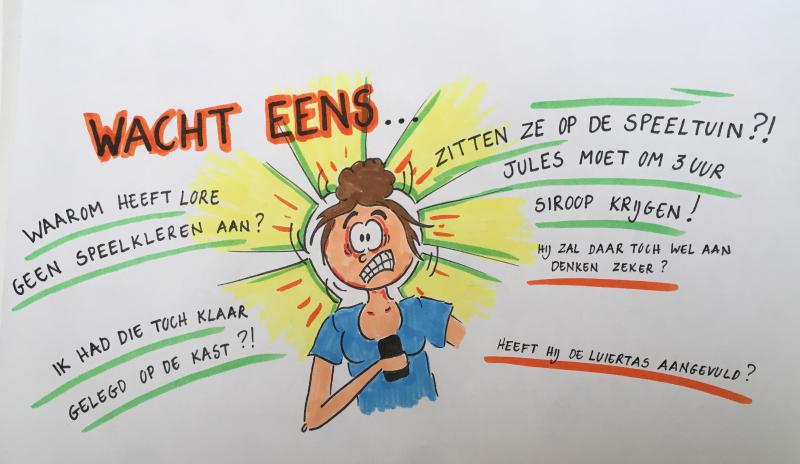 WACHT EENS...
WAAROM HEEFT LORE
GEEN SPEELKLEREN AAN?
IK HAD DIE TOCH KLAAR
GELEGD OP DE KAST?!
ZITTEN ZE OP DE SPEELTUIN?!
JULES MOET OM 3 UUR
SIROOP KRIJGEN!
HIJ ZAL DAAR TOCH WEL AAN
DENKEN ZEKER?
HEEFT HIJ DE LUIERTAS AANGEVULD?